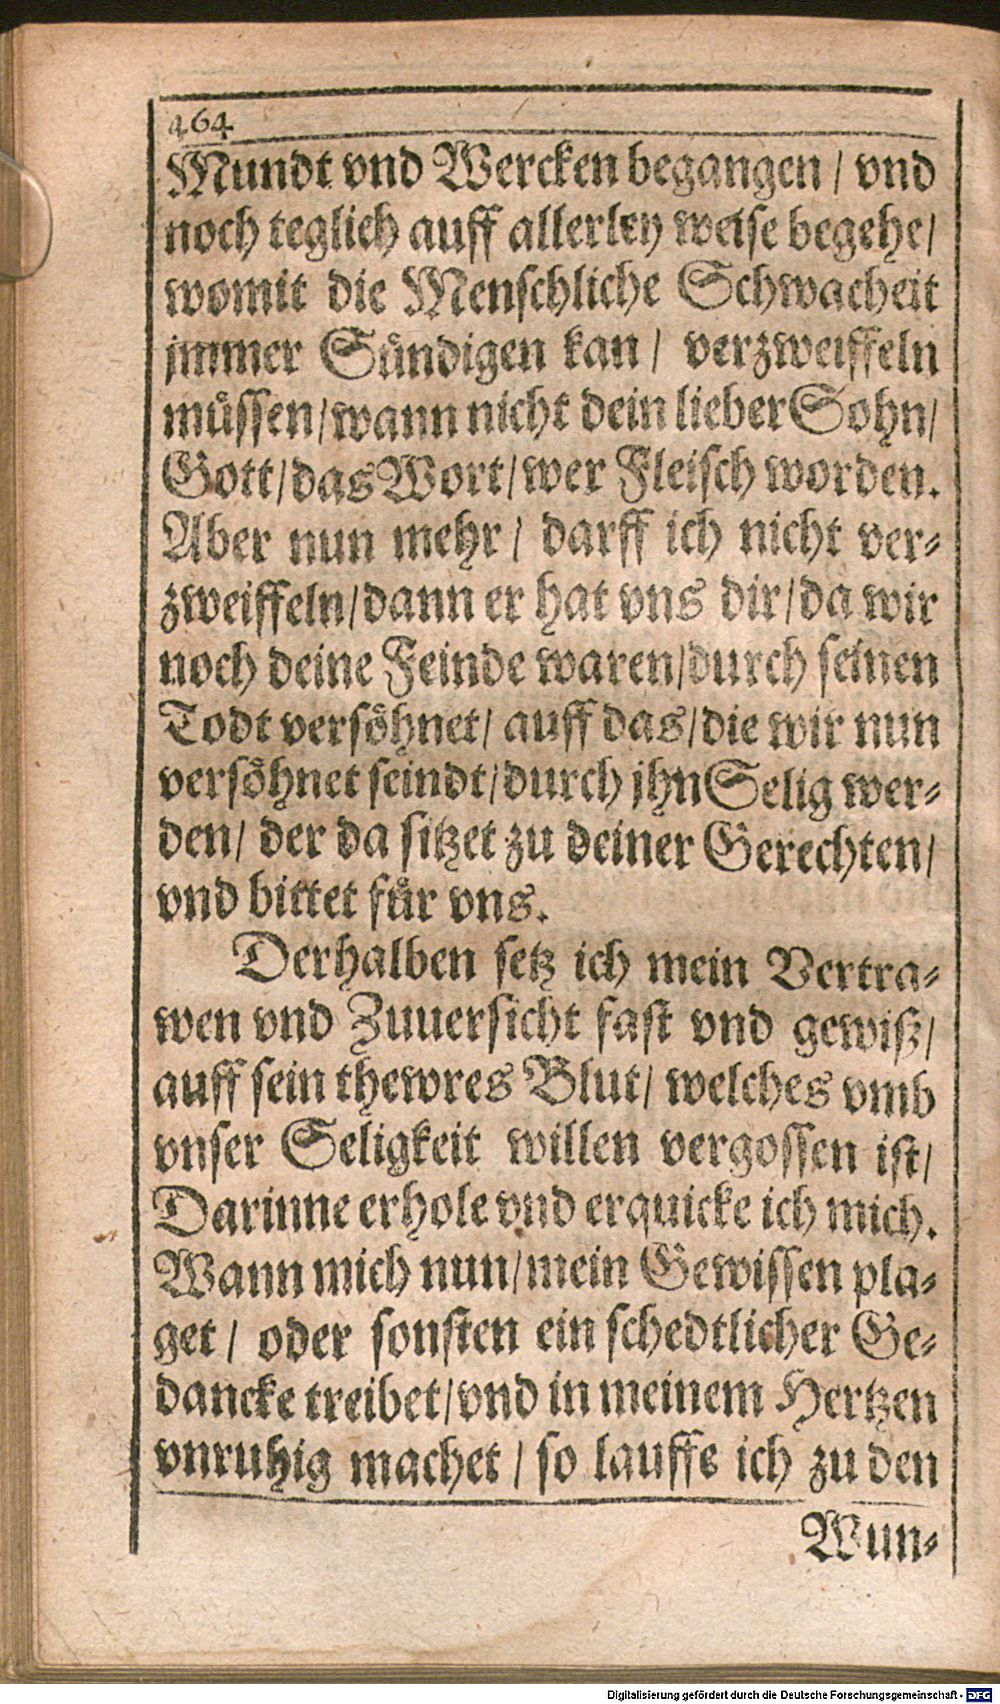 464
Mundt vnd Wercken begangen / vnd
noch teglich auff allerley weise begehe /
womit die Menschliche Schwacheit
jmmer Sündigen kan / verzweiffeln
müssen / wann nicht dein lieber Sohn /
Gott / das Wort / wer Fleisch worden.
Aber nun mehr / darff ich nicht ver-
zweiffeln / dann er hat vns dir / da wir
noch deine Feinde waren / durch seinen
Todt versöhnet / auff das / die wir nun
versöhnet seindt / durch jhn Selig wer-
den / der da sitzet zu deiner Gerechten /
vnd bittet für vns.
Derhalben setz ich mein Vertra-
wen vnd Zuuersicht fast vnd gewiß /
auff sein thewres Blut / welches vmb
vnser Seligkeit willen vergossen ist /
Darinne erhole vnd erquicke ich mich.
Wann mich nun / mein Gewissen pla-
get / oder sonsten ein schedtlicher Ge-
dancke treibet / vnd in meinem Hertzen
vnruhig machet / so lauffe ich zu den
Wun-
Digitalisierung gefördert durch die Deutsche Forschungsgemeinschaft - DFG